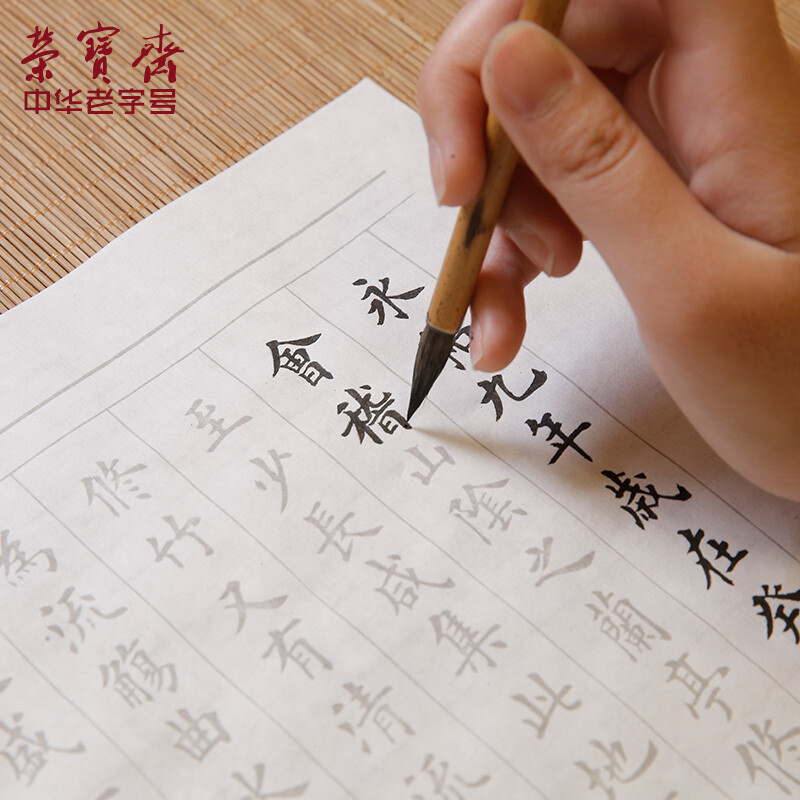 榮寶齋
中华老字号
永和九年歲在癸
會稽山陰之蘭亭脩
至少長咸集此地
脩竹又有清流
為流觴曲水
盛